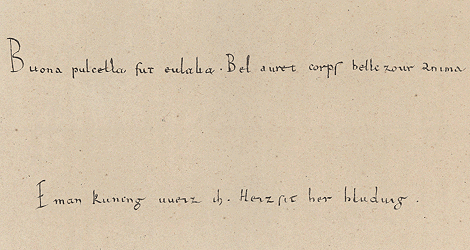 Buona pulcella fut eulalia. Bel auret corps bellezour anima
Einan kuning uueiz ih. Heizsit her hluduig.